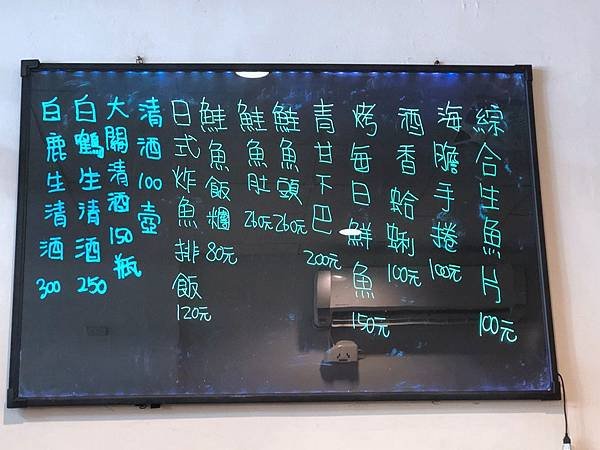 綜合生魚片100元
海膽手捲100元
酒香蛤蜊100元
烤每日鮮魚150元
青甘下巴200元
鮭魚頭260元
鮭魚肚260元
鮭魚飯糰80元
日式炸魚排飯120元
清酒100壺
大關清酒150瓶
白鶴生清酒250
白鹿生清酒300